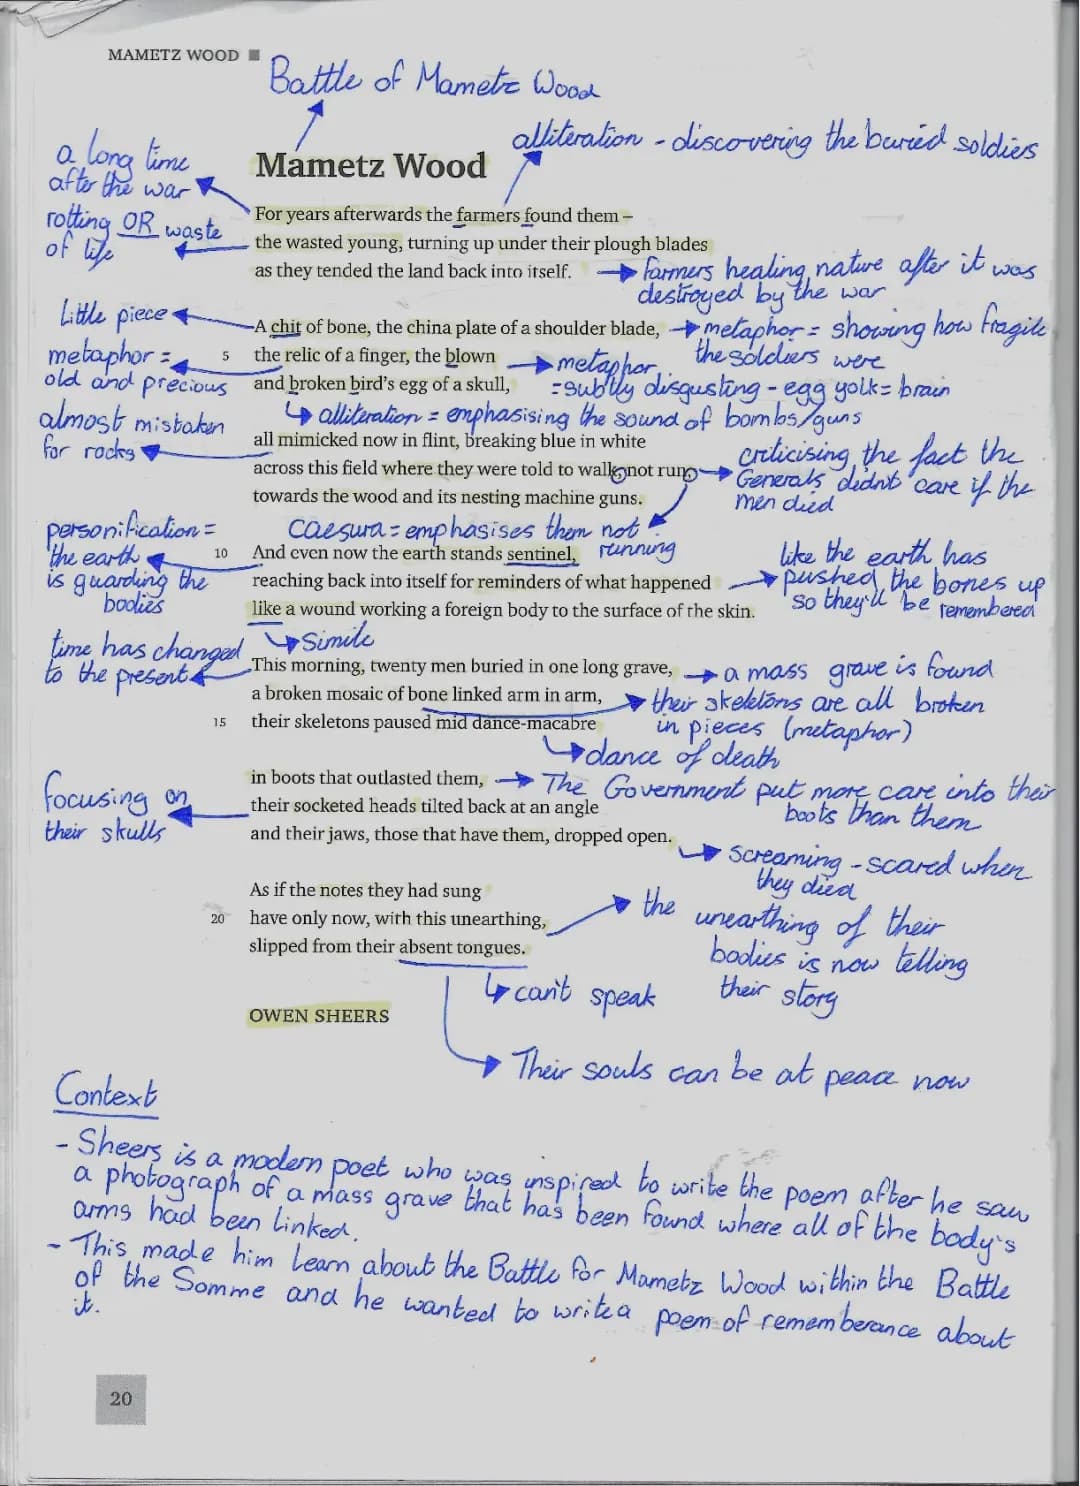 MAMETZ WOOD
Battle of Mametz Wood
alliteration - discovering the buried soldiers
a long time
after the war
Mametz Wood
rotting OR waste
of life
For years afterwards the farmers found them –
the wasted young, turning up under their plough blades
as they tended the land back into itself.
farmers healing nature after it was
destroyed by the war
Little piece
A chit of bone, the china plate of a shoulder blade,
metaphor = showing how fragile
the soldiers were
metaphor =
old and precious
5 the relic of a finger, the blown
metaphor
= subtly disgusting - egg yolk = brain
and broken bird's egg of a skull,
alliteration = emphasising the sound of bombs/guns
almost mistaken
for rocks
all mimicked now in flint, breaking blue in white
across this field where they were told to walk, not run,
criticising the fact the
Generals didn't care if the
men died
towards the wood and its nesting machine guns.
caesura = emphasises them not
running
personification =
the earth
is guarding the
bodies
10 And even now the earth stands sentinel,
reaching back into itself for reminders of what happened
like a wound working a foreign body to the surface of the skin.
like the earth has
pushed the bones up
so they'll be remembered
Simile
time has changed
to the present
This morning, twenty men buried in one long grave,
a mass grave is found
a broken mosaic of bone linked arm in arm,
their skeletons are all broken
in pieces (metaphor)
15 their skeletons paused mid dance-macabre
dance of death
in boots that outlasted them,
The Government put more care into their
boots than them
focusing on
their skulls
their socketed heads tilted back at an angle
and their jaws, those that have them, dropped open.
screaming - scared when
they died
As if the notes they had sung
20 have only now, with this unearthing,
slipped from their absent tongues.
the unearthing of their
bodies is now telling
their story
can't speak
OWEN SHEERS
Their souls can be at peace now
Context
- Sheers is a modern poet who was inspired to write the poem after he saw
a photograph of a mass grave that has been found where all of the body's
arms had been linked.
- This made him learn about the Battle for Mametz Wood within the Battle
of the Somme and he wanted to write a poem of rememberance about
it.
20